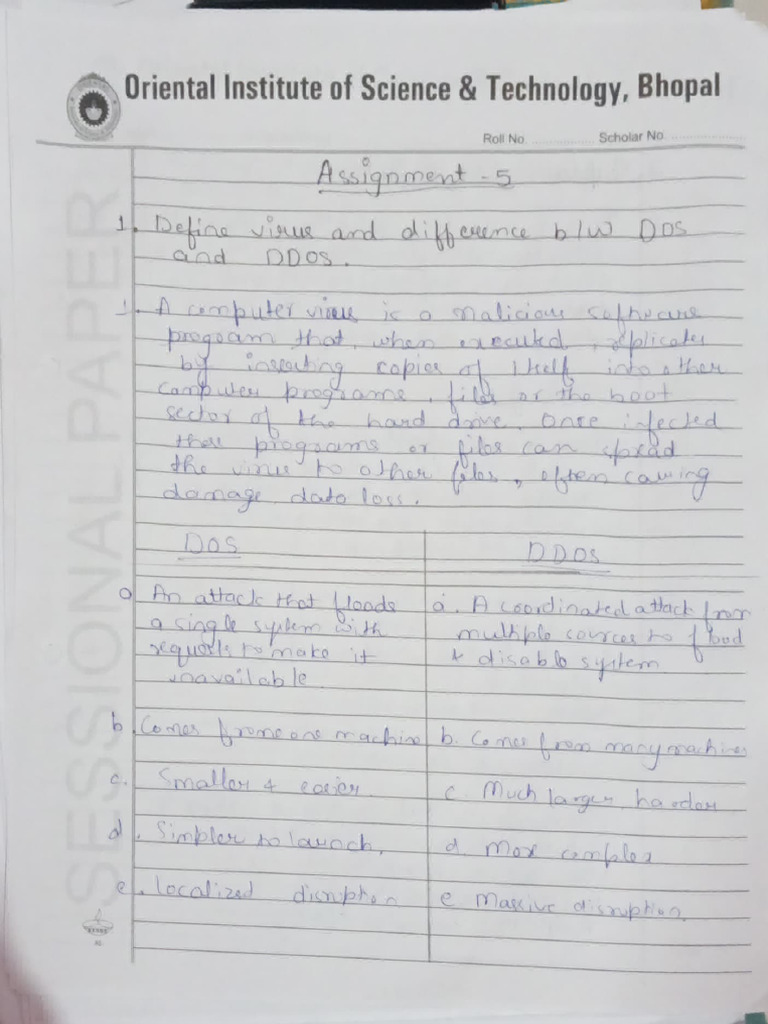 Oriental Institute of Science & Technology, Bhopal
Roll No. .................. Scholar No. ..................
Assignment - 5
1. Define virus and difference b/w DOS
and DDOS.
1. A computer virus is a malicious software
program that, when executed, replicates
by inserting copies of itself into other
computer programs, files or the boot
sector of the hard drive. Once infected
these programs or files can spread
the virus to other files, often causing
damage data loss.
DOS
DDOS
a An attack that floods
a single system with
requests to make it
unavailable
a. A coordinated attack from
multiple sources to flood
& disable system
b. Comes from one machine
b. Comes from many machines
c. Smaller & easier
c. Much larger, harder
d. Simpler to launch.
d. More complex
e. localized disruption
e Massive disruption.
SESSIONAL PAPER